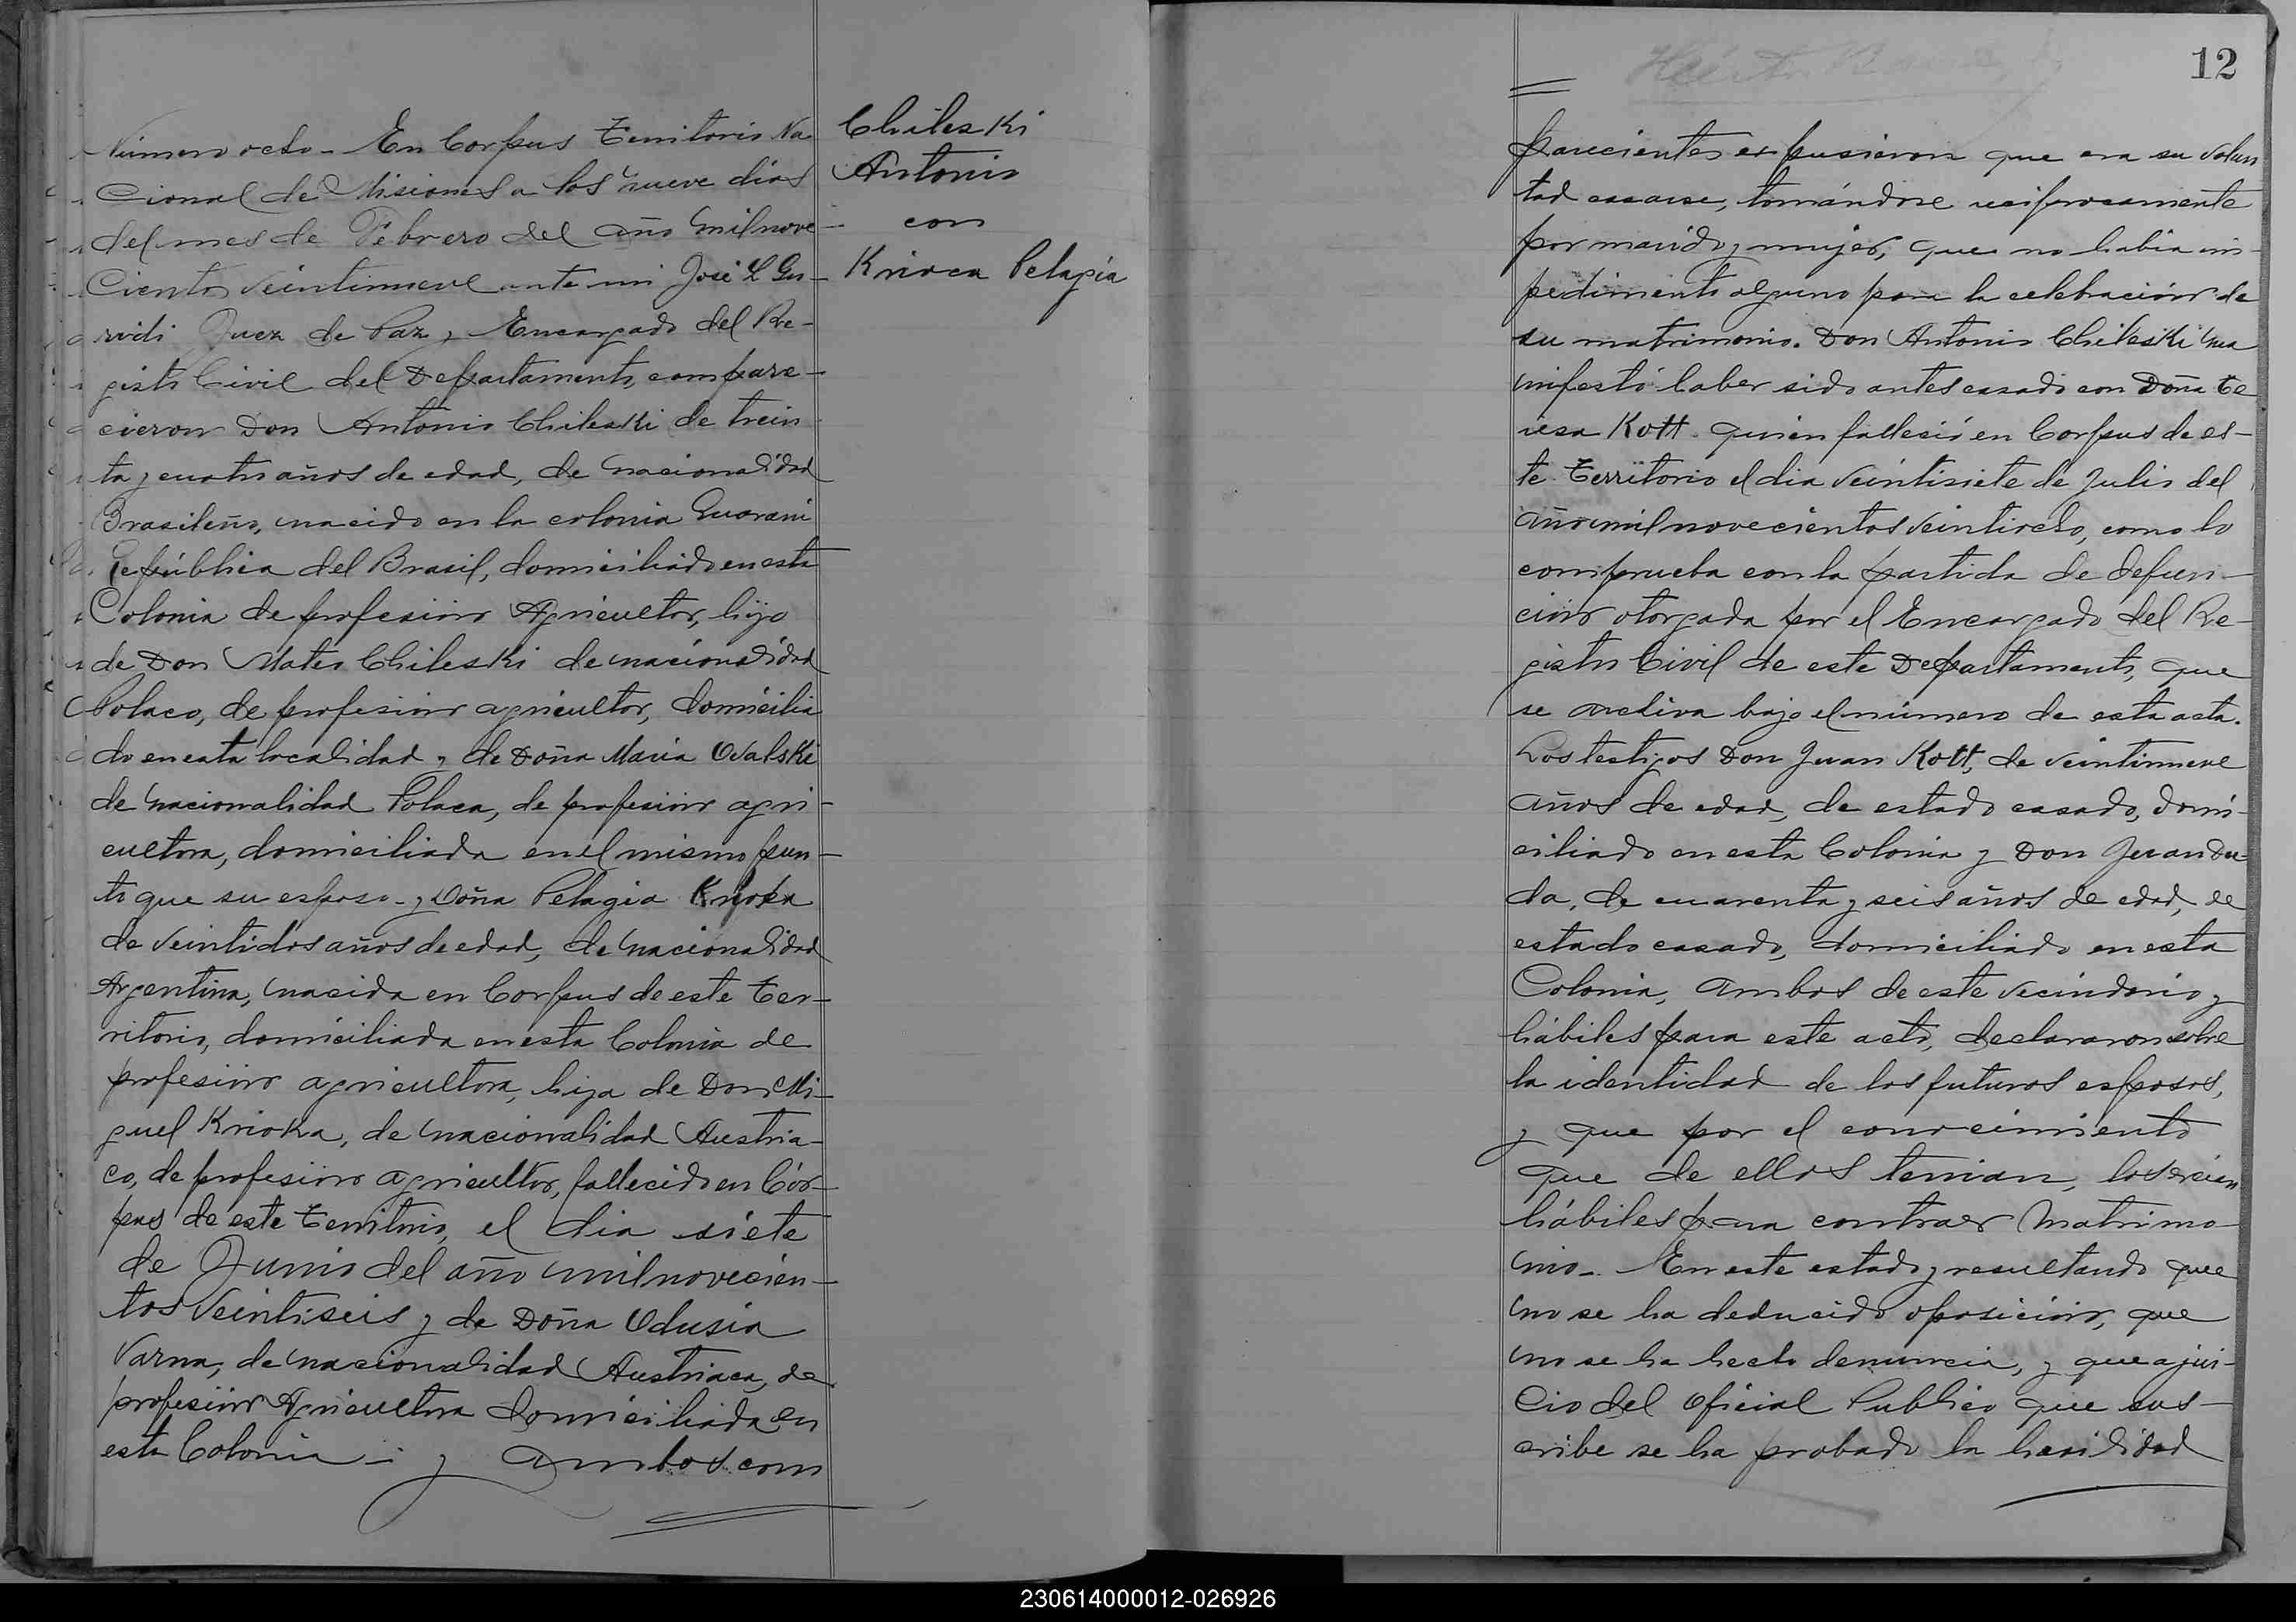 Número ocho - En Corpus Territorio Na-
cional de Misiones a los nueve dias
del mes de Febrero del año mil nove-
cientos veintinueve ante mi José L
Juez de Paz y Encargado del Re-
gistro Civil del Departamento, compare-
cieron Don Antonio Chileski de trein
ta y cuatro años de edad, de nacionalidad
Brasileño, nacido en la colonia Guarani
República del Brasil, domiciliado en esta
Colonia de profesión Agricultor, hijo
de Don Mateo Chileski de nacionalidad
Polaco, de profesion agricultor, domicilia
do en esta localidad y de Doña Maria Ovalski
de nacionalidad Polaca, de profesión agri-
cultora, domiciliada en el mismo pun-
to que su esposo - y Doña Pelagia
de veintidos años de edad, de nacionalidad
Argentina, nacida en Corpus de este Ter-
ritorio, domiciliada en esta Colonia de
profesión agricultora, hija de Don Mi-
guel Krioka, de nacionalidad Austria-
co, de profesión agricultor, fallecido en Cór-
pus de este Territorio, el dia siete
de Junio del año mil novecien-
tos veintiseis y de Doña Odusia
Varna, de nacionalidad Austriaca, de
profesión Agricultora domiciliada en
esta Colonia - y ambos com
Chileski
Antonio
con
Krioca Pelagia
12
parecientes expusieron que era su volun
tad casarse, tomándose reciprocamente
por marido y mujer, que no habia im-
pedimento alguno para la celebración de
su matrimonio. Don Antonio Chileski ma
nifestó haber sido antes casado con Doña Te
resa Kott quien falleció en Corpus de es-
te Territorio el dia veintisiete de Julio del
año mil novecientos veintiocho, como lo
comprueba con la partida de defun-
ción otorgada por el Encargado del Re-
gistro Civil de este Departamento, que
se archiva bajo el número de esta acta.
Los testigos Don Juan Kott, de veintinueve
años de edad, de estado casado, domi-
ciliado en esta Colonia y Don Juan Du-
da, de cuarenta y seis años de edad, de
estado casado, domiciliado en esta
Colonia, ambos de este vecindario y
hábiles para este acto, declararon sobre
la identidad de los futuros esposos,
y que por el conocimiento
que de ellos tenian, los creian
hábiles para contraer matrimo-
nio - En este estado y resultando que
no se ha deducido oposición, que
no se ha hecho denuncia, y que a jui-
cio del Oficial Publico que sus-
cribe se ha probado la
230614000012-026926